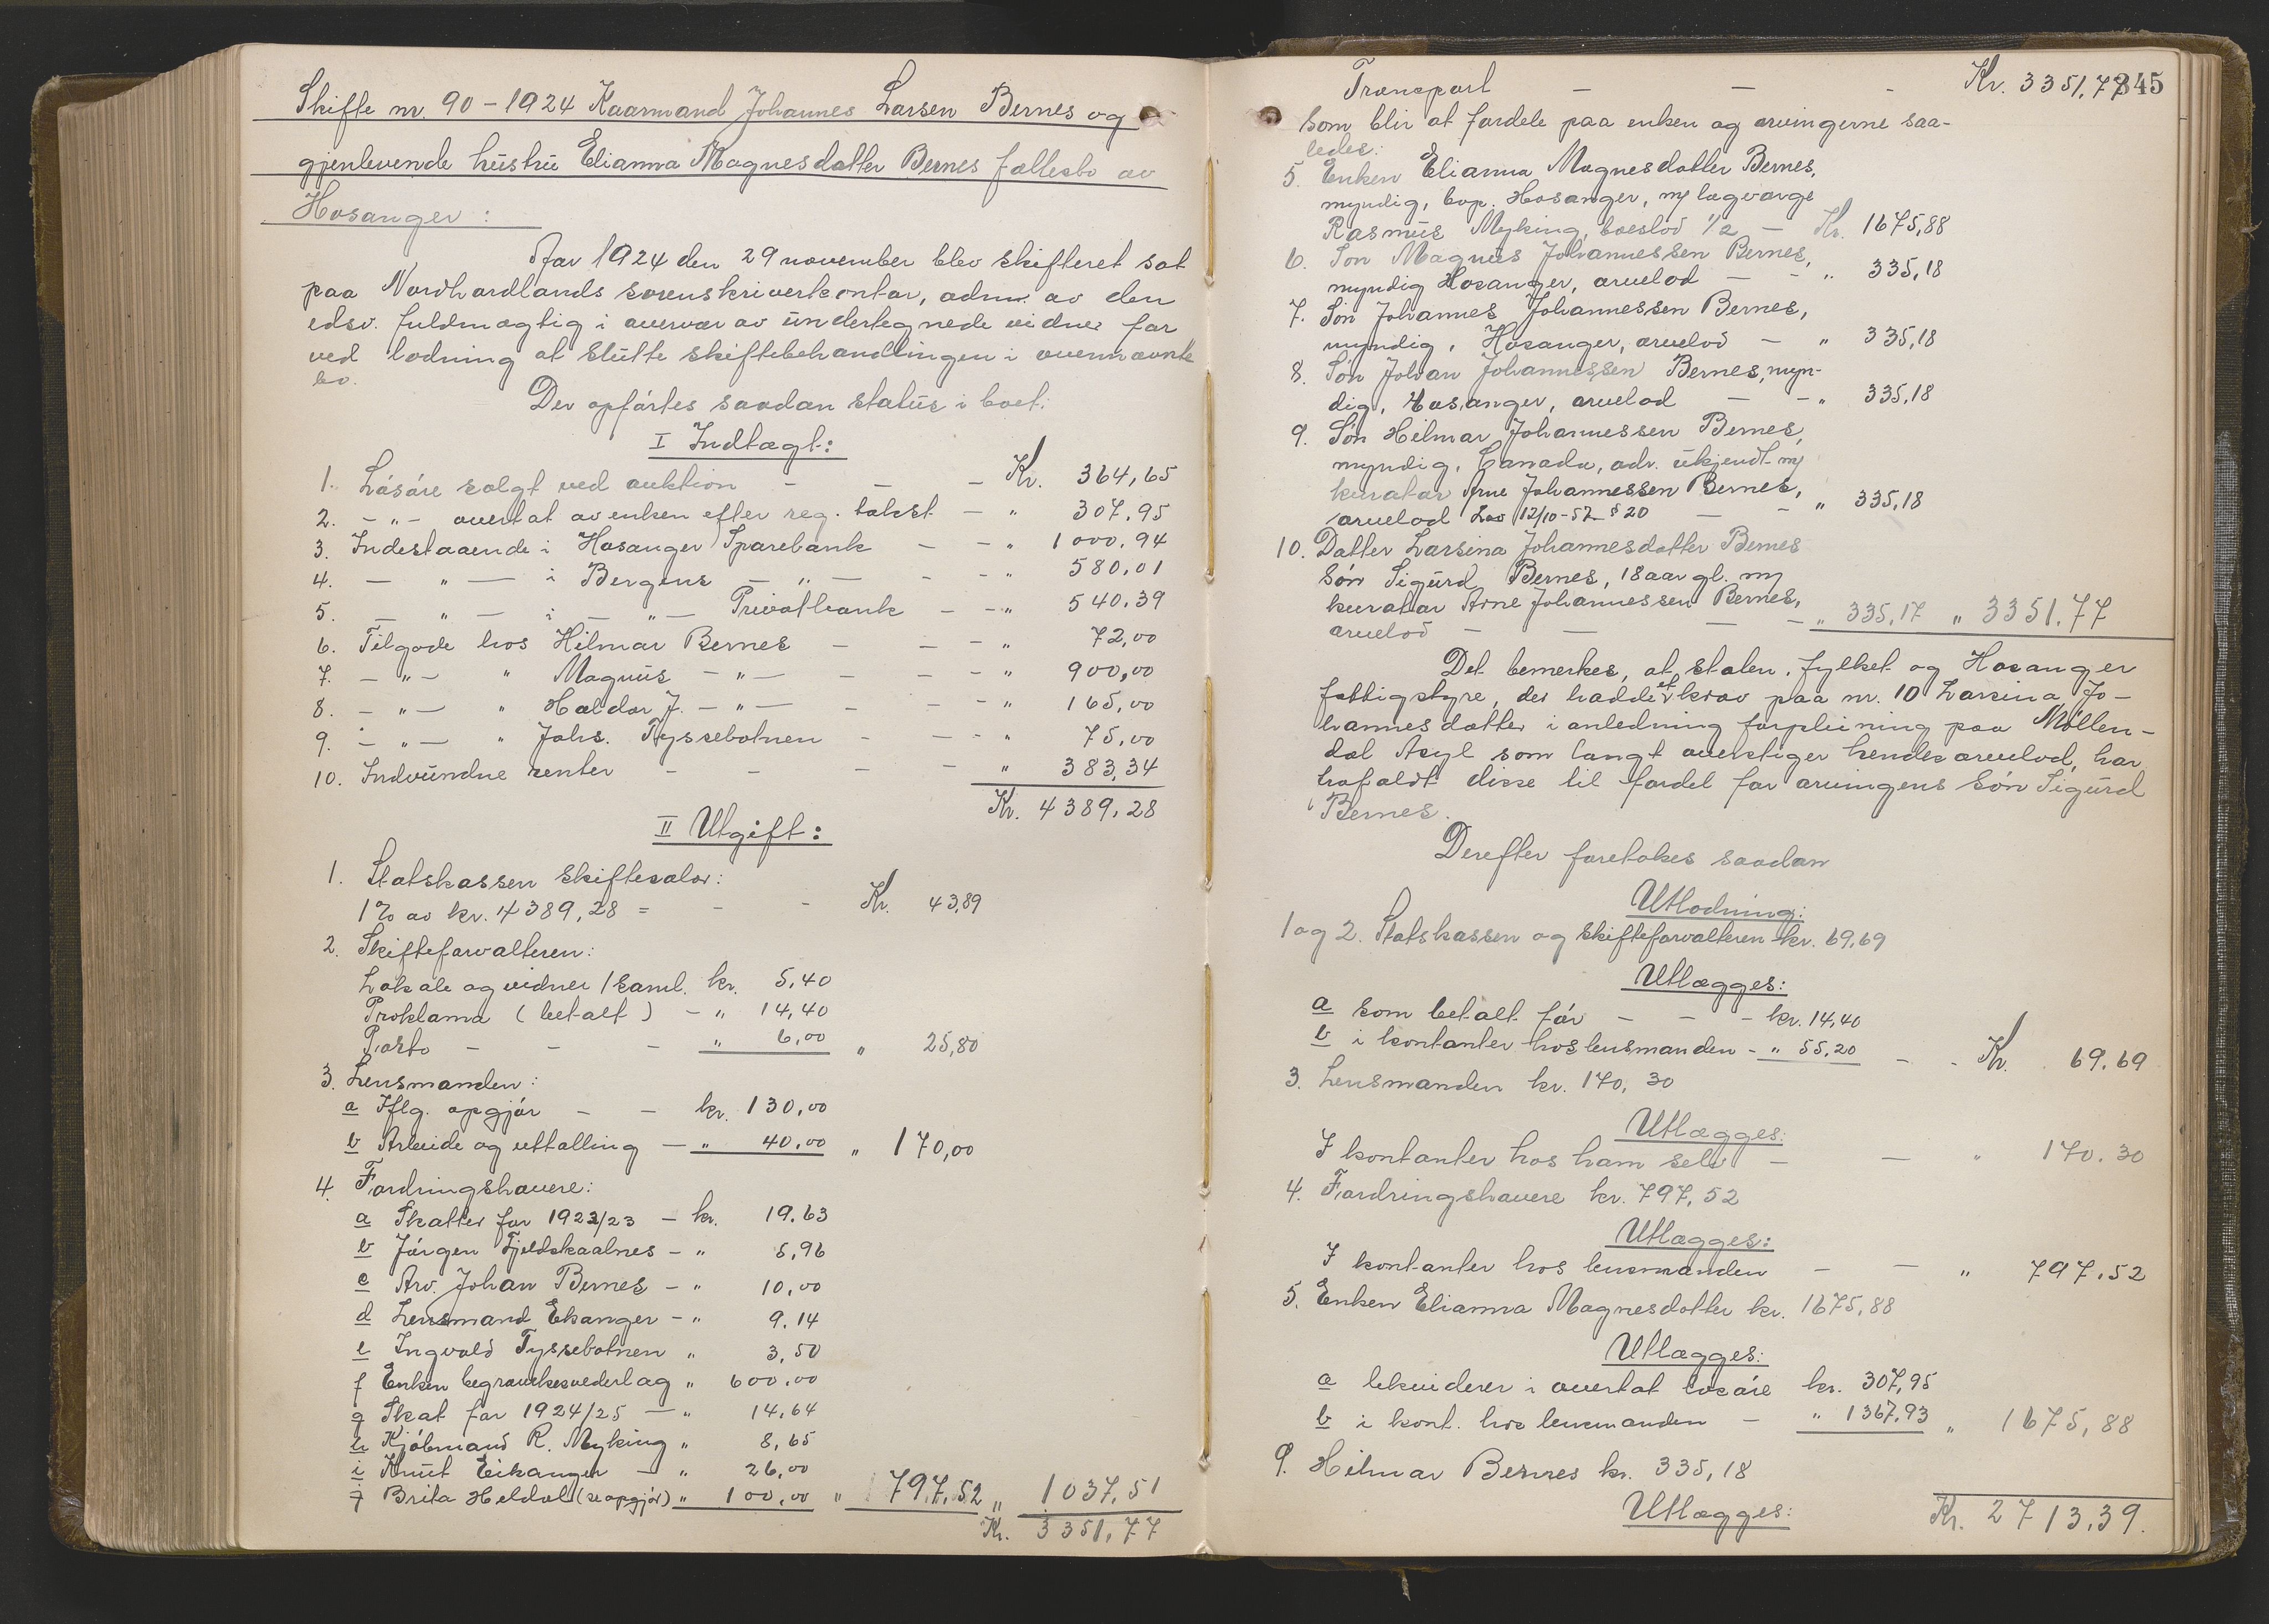 Skifte nr. 90 - 1924 Kaarmand Johannes Larsen Bernes og
gjenlevende hustru Elianna Magnesdatter Bernes fællesbo av
Hosanger:
Aar 1924 den 29 november blev skifteret sat
paa Nordhordlands sorenskriverkontor, adm. av den
edsv. fuldmægtig i overvær av undertegnede vidner for
ved lodning at slutte skiftebehandlingen i ovennævnte
bo.
Der opførtes saadan status i boet:
I Indtægt:
1. Løsøre solgt ved auktion - - - Kr. 364,65
2. - " - overtat av enken efter reg. takst - " 307.95
3. Indestaaende i Hosanger Sparebank - - " 1000.94
4. - " - i Bergens - " - - - " 580,01
5. - " - i - " - Privatbank - - " 540.39
6. Tilgode hos Hilmar Bernes - - - " 72,00
7. - " - " Magnus - " - - - - " 900,00
8. - " - " Haldor J. - " - - - - " 165,00
9. - " - " Johs. Tyssebotnen - - - " 75,00
10. Indvundne renter - - - - " 383,34
Kr. 4389,28
II Utgift:
1. Statskassen skiftesalær:
1% av kr. 4389,28 = - - Kr. 43,89
2. Skifteforvalteren:
Lokale og vidner 1 saml. kr. 5,40
Proklama (betalt) - " 14,40
Porto - - - " 6,00 " 25,80
3. Lensmanden:
a Iflg. opgjør - - kr. 130,00
b Arbeide og uttælling - " 40.00 " 170,00
4. Fordringshavere:
a Skatter for 1922/23 - kr. 19.63
b Jørgen Fjeldskaalnes - " 5,96
c Arv. Johan Bernes - " 10,00
d Lensmand Ekanger - " 9.14
e Ingvald Tyssebotnen " 3,50
f Enken begravelsesvederlag " 600,00
g Skat for 1924/25 - " 14,64
h Kjøbmand R. Myking " 8,65
i Knut Eikanger - " 26,00
j Brita Heldal (se opgjør) " 100,00 " 797,52 " 1037,51
Kr. 3351,77
Transport - - - Kr. 3351,77
345
som blir at fordele paa enken og arvingerne saa-
ledes:
5. Enken Elianna Magnesdatter Bernes,
myndig, bop. Hosanger, m/ lagværge
Rasmus Myking, boeslod 1/2 - Kr. 1675,88
6. Søn Magnus Johannessen Bernes,
myndig Hosanger, arvelod - - " 335,18
7. Søn Johannes Johannessen Bernes,
myndig, Hosanger, arvelod - " 335,18
8. Søn Johan Johannessen Bernes, myn-
dig, Hosanger, arvelod - - " 335,18
9. Søn Hilmar Johannessen Bernes,
myndig, Canada, adr. ukjendt m/
kurator Arne Johannessen Bernes,
arvelod Lov 12/10-57 § 20 - - " 335,18
10. Datter Larsina Johannesdatter Bernes
Søn Sigurd Bernes, 18 aar gl. m/
kurator Arne Johannessen Bernes,
arvelod - - - - " 335,17 " 3351.77
Det bemerkes, at staten, fylket og Hosanger
fattigstyre, der hadde et krav paa nr. 10 Larsina Jo-
hannesdatter i anledning forpleining paa Møllen-
dal Asyl som langt overstiger hendes arvelod, har
frafaldt disse til fordel for arvingens søn Sigurd
Bernes.
Derefter foretokes saadan
Utlodning:
1 og 2. Statskassen og skifteforvalteren kr. 69,69
Utlægges:
a som betalt før - - - kr. 14,40
b i kontanter hos lensmanden - " 55,20 - - Kr. 69.69
3. Lensmanden kr. 170,30
Utlægges:
I kontanter hos ham selv - - " 170.30
4. Fordringshavere kr. 797,52
Utlægges:
I kontanter hos lensmanden - - " 797.52
5. Enken Elianna Magnesdatter kr. 1675,88
Utlægges:
a likviderer i overtat løsøre kr. 307,95
b i kont. hos lensmanden - " 1367.93 " 1675,88
9. Hilmar Bernes kr. 335,18
Utlægges: Kr. 2713.39.